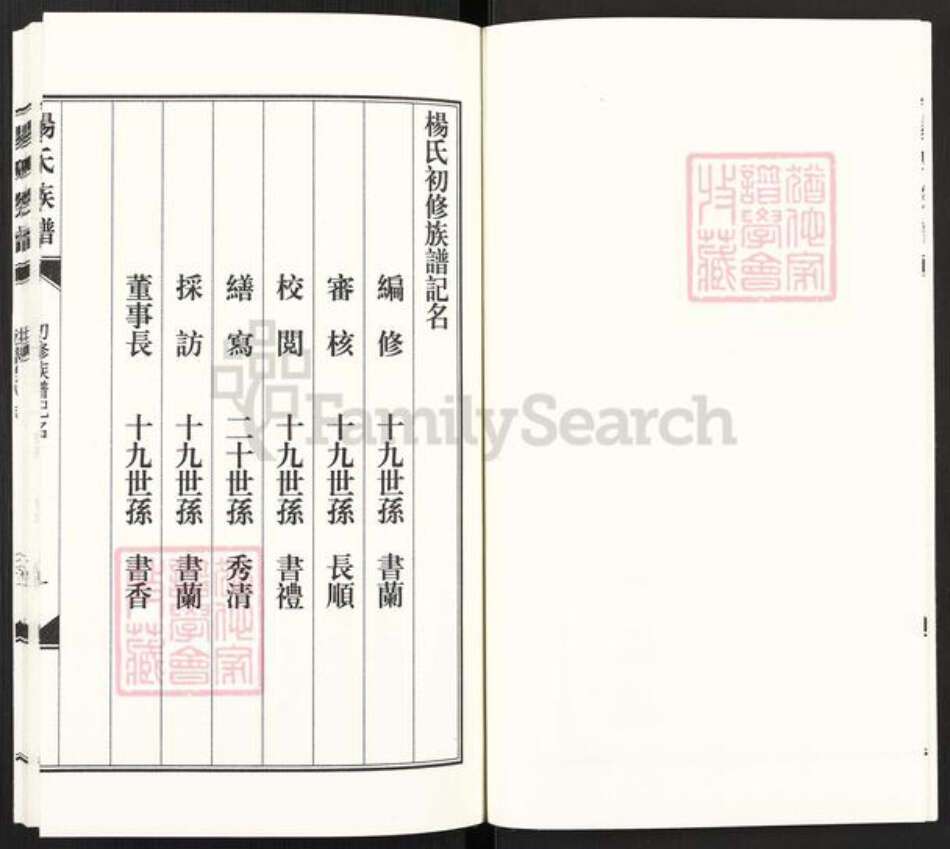 楊氏初修族譜記名
編修 十九世孫 書蘭
審核 十九世孫 長順
校閲 十九世孫 書禮
繕寫 二十世孫 秀清
採訪 十九世孫 書蘭
董事長 十九世孫 書香
楊氏族譜
初修族譜記名
一
FamilySearch